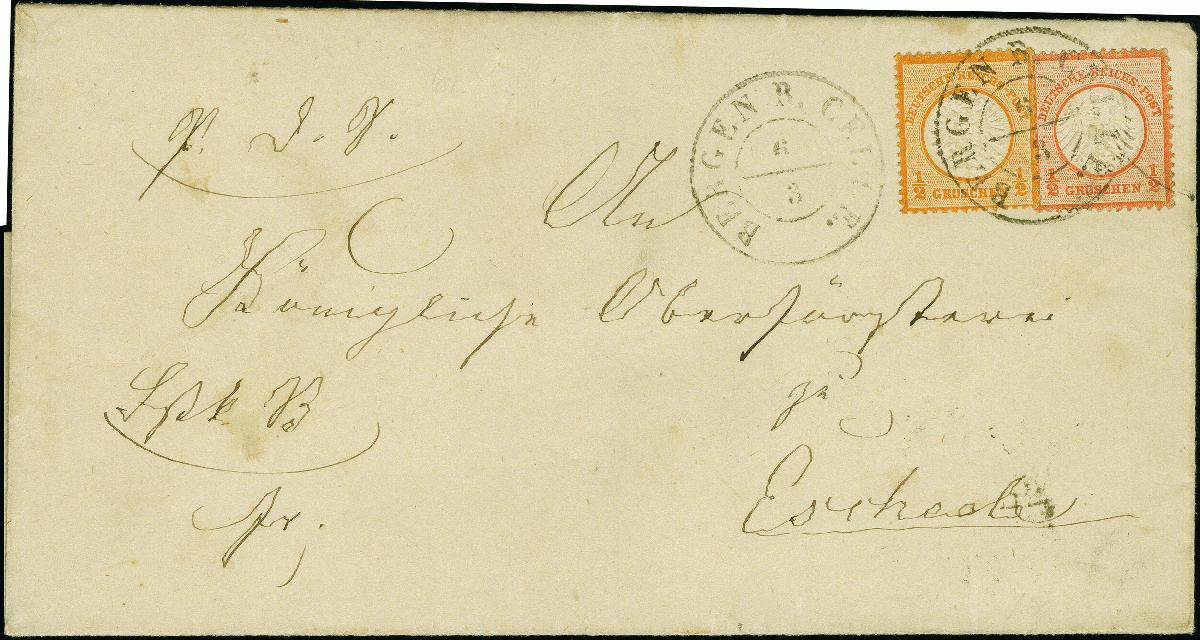 P. D. S.
An
Königliche Oberförsterei
zu
Eschede
Fr.
BERGEN B. CELLE.
6
3
DEUTSCHE REICHS-POST
1/2 GROSCHEN 1/2
DEUTSCHE REICHS-POST
1/2 GROSCHEN 1/2
BERGEN B. CELLE.
6
3